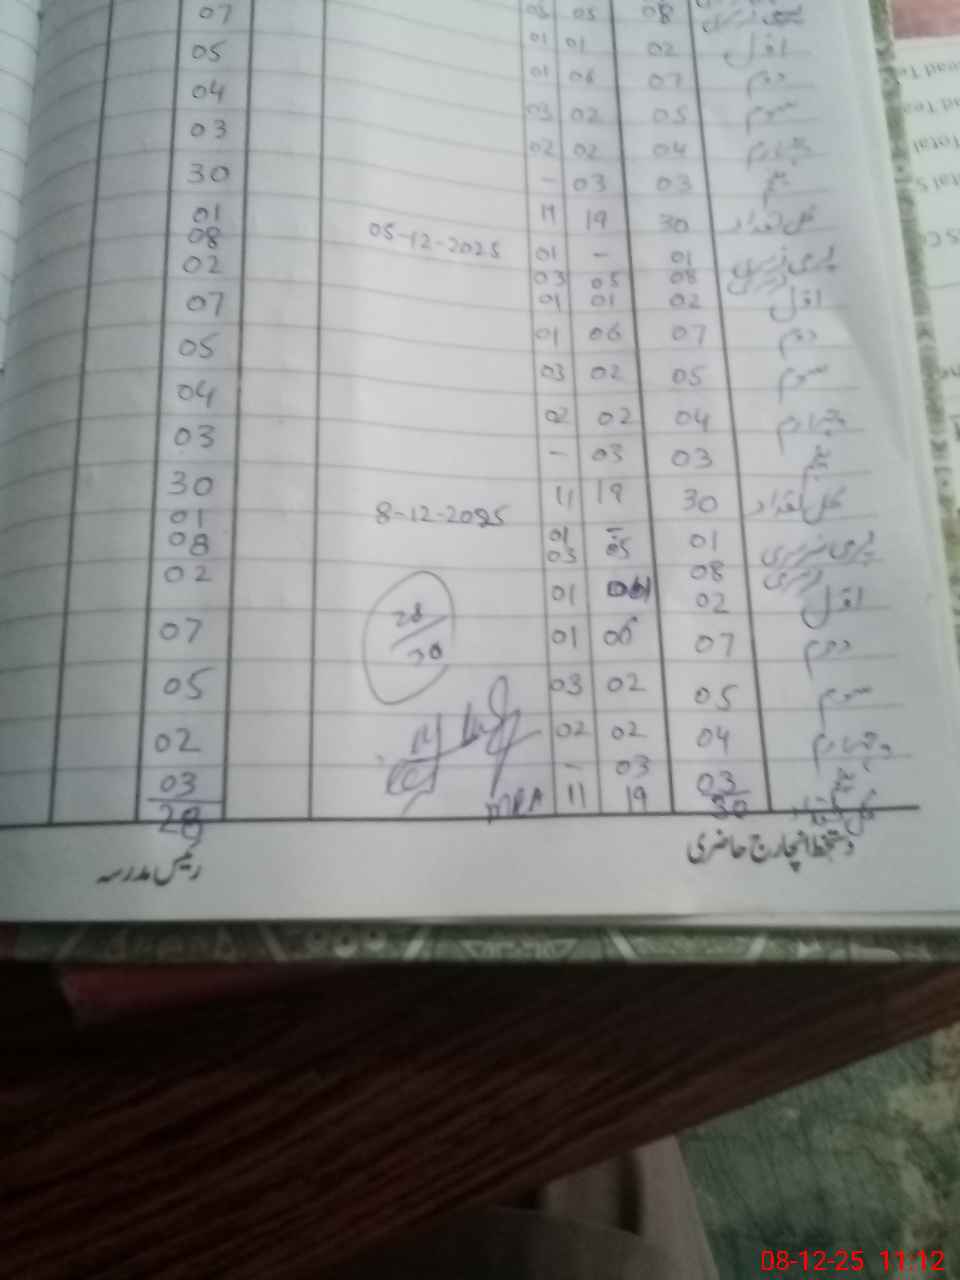 08 05 03 07
اول 02 01 01 05
دوم 07 06 01 04
سوم 05 02 03 03
چہارم 04 02 02 30
پنجم 03 03 - 01
کل تعداد 30 19 11 08
05-12-2025
پری نرسری 01 - 01 02
نرسری 08 05 03
اول 02 01 01 07
دوم 07 06 01 05
سوم 05 02 03 04
چہارم 04 02 02 03
پنجم 03 03 - 30
کل تعداد 30 19 11 01
8-12-2025
پری نرسری 01 - 01 08
نرسری 08 05 03 02
اول 02 01 01
دوم 07 06 01 07
28/30
سوم 05 02 03 05
چہارم 04 02 02 02
پنجم 03 03 - 03
کل تعداد 30 19 11 28
MEA
دستخط انچارج حاضری
رئیس مدرسہ
ead Te
ad Tea
Total
tal S
08-12-25 11:12